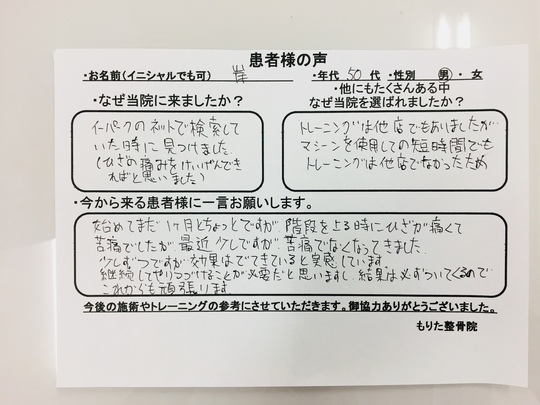 患者様の声
・お名前(イニシャルでも可) 岸 ・年代 50 代 ・性別 男・女
・なぜ当院に来ましたか?
イーパークのネットで検索して
いた時に見つけました
(ひざの痛みをけいげんでき
ればと思いました)
・他にもたくさんある中
なぜ当院を選ばれましたか?
トレーニングは他店でもありましたが
マシーンを使用しての短時間でも
トレーニングは他店でなかったため
・今から来る患者様に一言お願いします。
始めてまだ1ヶ月とちょっとですが、階段を上る時にひざが痛くて
苦痛でしたが最近少しですが苦痛でなくなってきました
少しずつですが効果はでてきていると実感しています
継続してやりつづけることが必要だと思いますし、結果は必ずついてくるので
これからも頑張ります
今後の施術やトレーニングの参考にさせていただきます。御協力ありがとうございました。
もりた整骨院